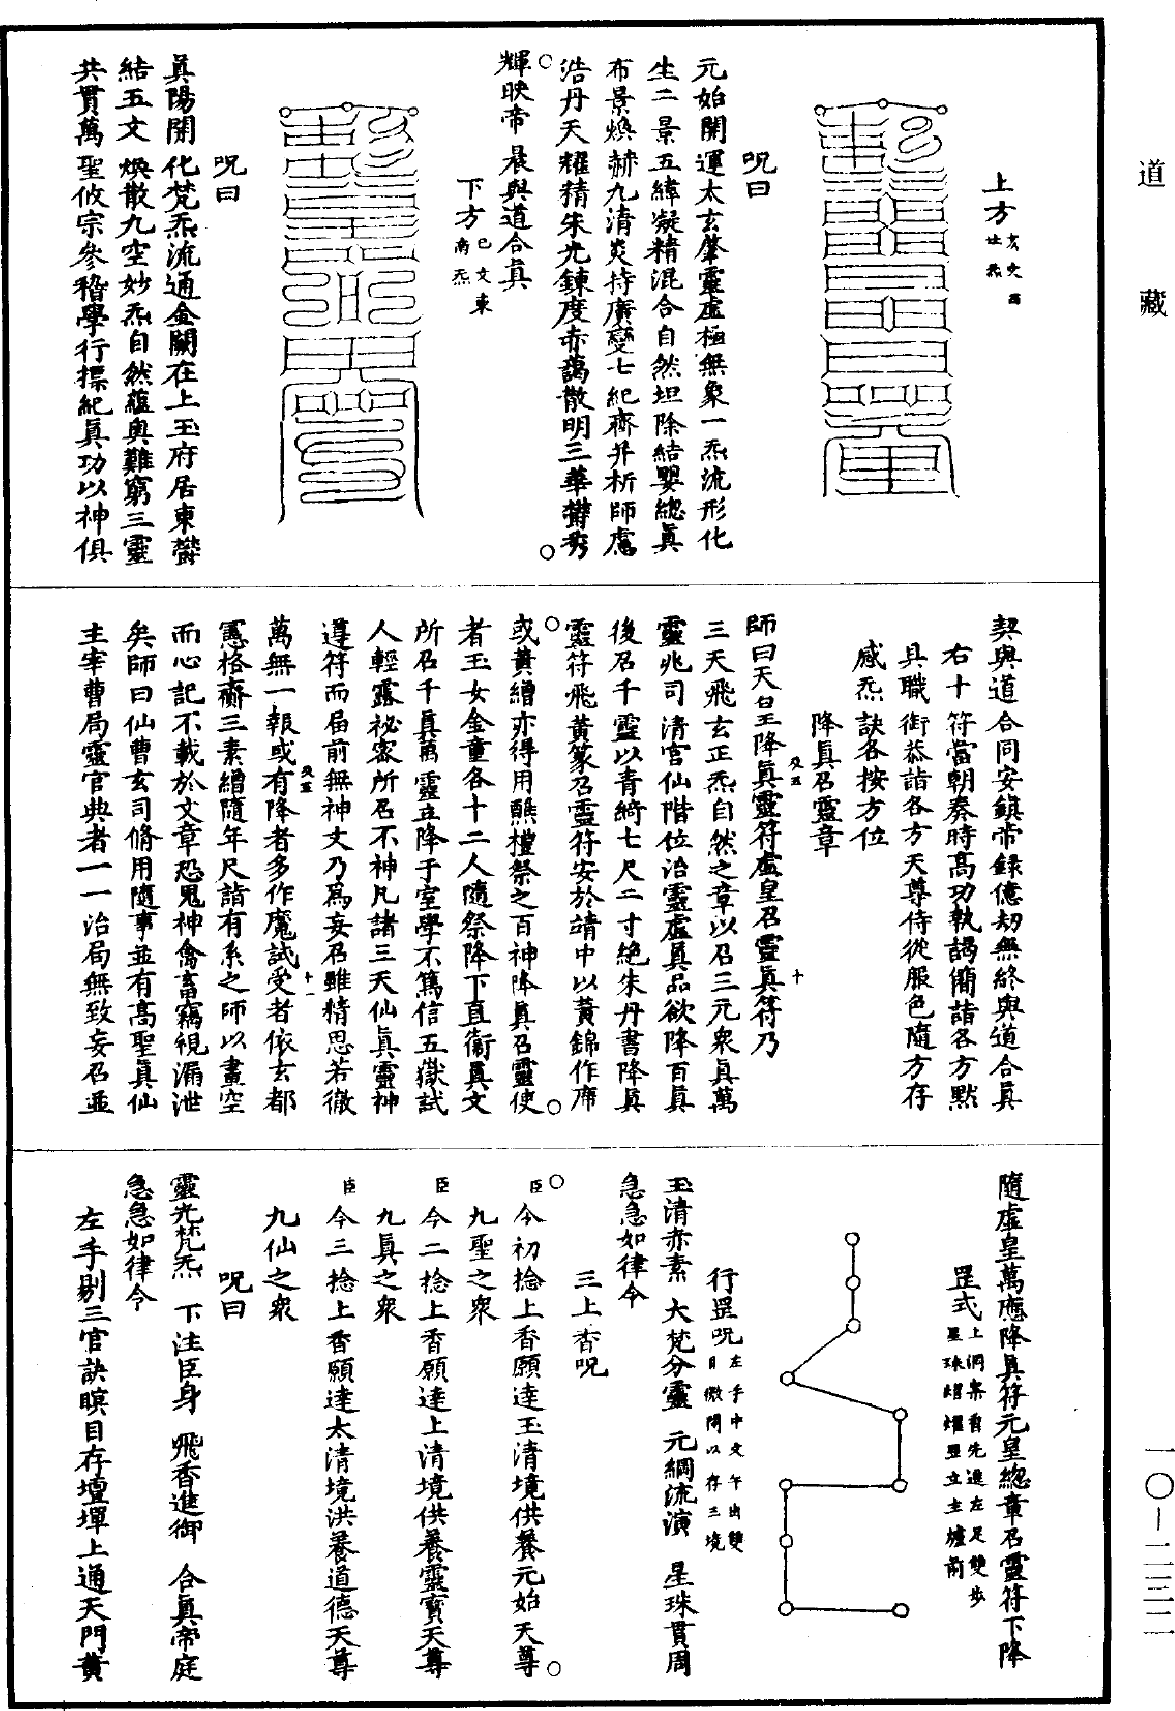 道藏
上方
呪曰
元始開運太玄肇靈虛極無象一炁流形化
生二景五緯凝精混合自然坦除結嬰總眞
布景煥赫九清炎持廣變七紀齊并析師處
浩丹天耀精朱光鍊度赤藹散明三華鬱秀
輝映帝晨與道合眞
下方
呪曰
眞陽開化梵炁流通金闕在上玉府居東鬱
結五文煥散九空妙炁自然蘊奧難窮三靈
共貫萬聖攸宗參稽學行標紀眞功以神俱
契與道合同安鎮帝錄億劫無終與道合眞
右十符當朝奏時高功執謁簡詣各方默
具職銜恭詣各方天尊侍從服色隨方存
感炁訣各按方位
降眞召靈章
師曰天皇降眞靈符虛皇召靈眞符乃
三天飛玄正炁自然之章以召三元衆眞萬
靈兆司清宮仙階位治靈虛眞品欲降百眞
後召千靈以青綺七尺二寸絶朱丹書降眞
靈符飛黄篆召靈符安於靖中以黄錦作席
或黄繒亦得用醮禮祭之百神降眞召靈使
者玉女金童各十二人隨祭降下直衞眞文
所召千眞萬靈立降于室學不篤信五嶽試
人輕露祕密所召不神凡諸三天仙眞靈神
遵符而屆前無神文乃爲妄召雖精思若徹
萬無一報或有降者多作魔試受者依玄都
憲格齎三素繒隨年尺詣有系之師以畫空
而心記不載於文章恐鬼神禽畜竊視漏泄
矣師曰仙曹玄司脩用隨事並有高聖眞仙
主宰曹局靈官典者一一治局無致妄召並
隨虛皇萬應降眞符元皇總章召靈符下降
罡式
上洞案香先進左足雙步
星珠熠燿盟立主爐前
行罡呪
左手中文午出雙
目微閉以存三境
玉清赤素 大梵分靈 元綱流演 星珠貫周
急急如律令
三上香呪
臣今初捻上香願達玉清境供養元始天尊
九聖之衆
臣今二捻上香願達上清境供養靈寶天尊
九眞之衆
臣今三捻上香願達太清境洪養道德天尊
九仙之衆
呪曰
靈光梵炁 下注臣身 飛香進御 合眞帝庭
急急如律令
左手剔三官訣瞑目存壇墠上通天門黄
一〇—二三二